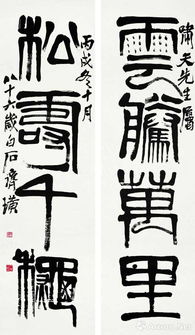 嘯天先生屬
雲騰萬里
丙戌冬十月
松壽千龝
八十六歲白石齊璜